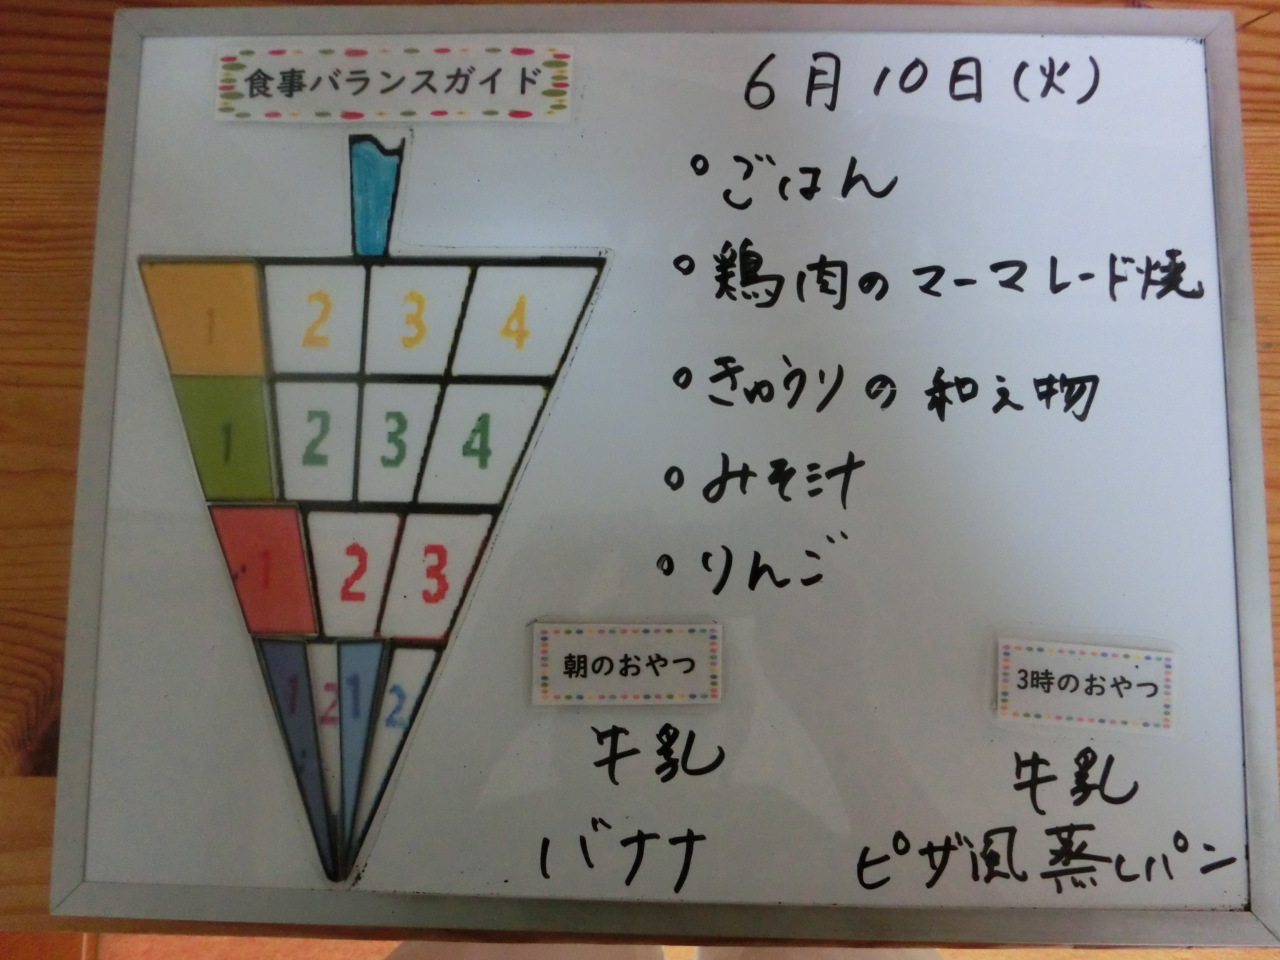 食事バランスガイド
6月10日(火)
ごはん
鶏肉のマーマレード焼
きゅうりの和え物
みそ汁
りんご
1 2 3 4
1 2 3 4
1 2 3
1 2 1 2
朝のおやつ
牛乳
バナナ
3時のおやつ
牛乳
ピザ風蒸しパン